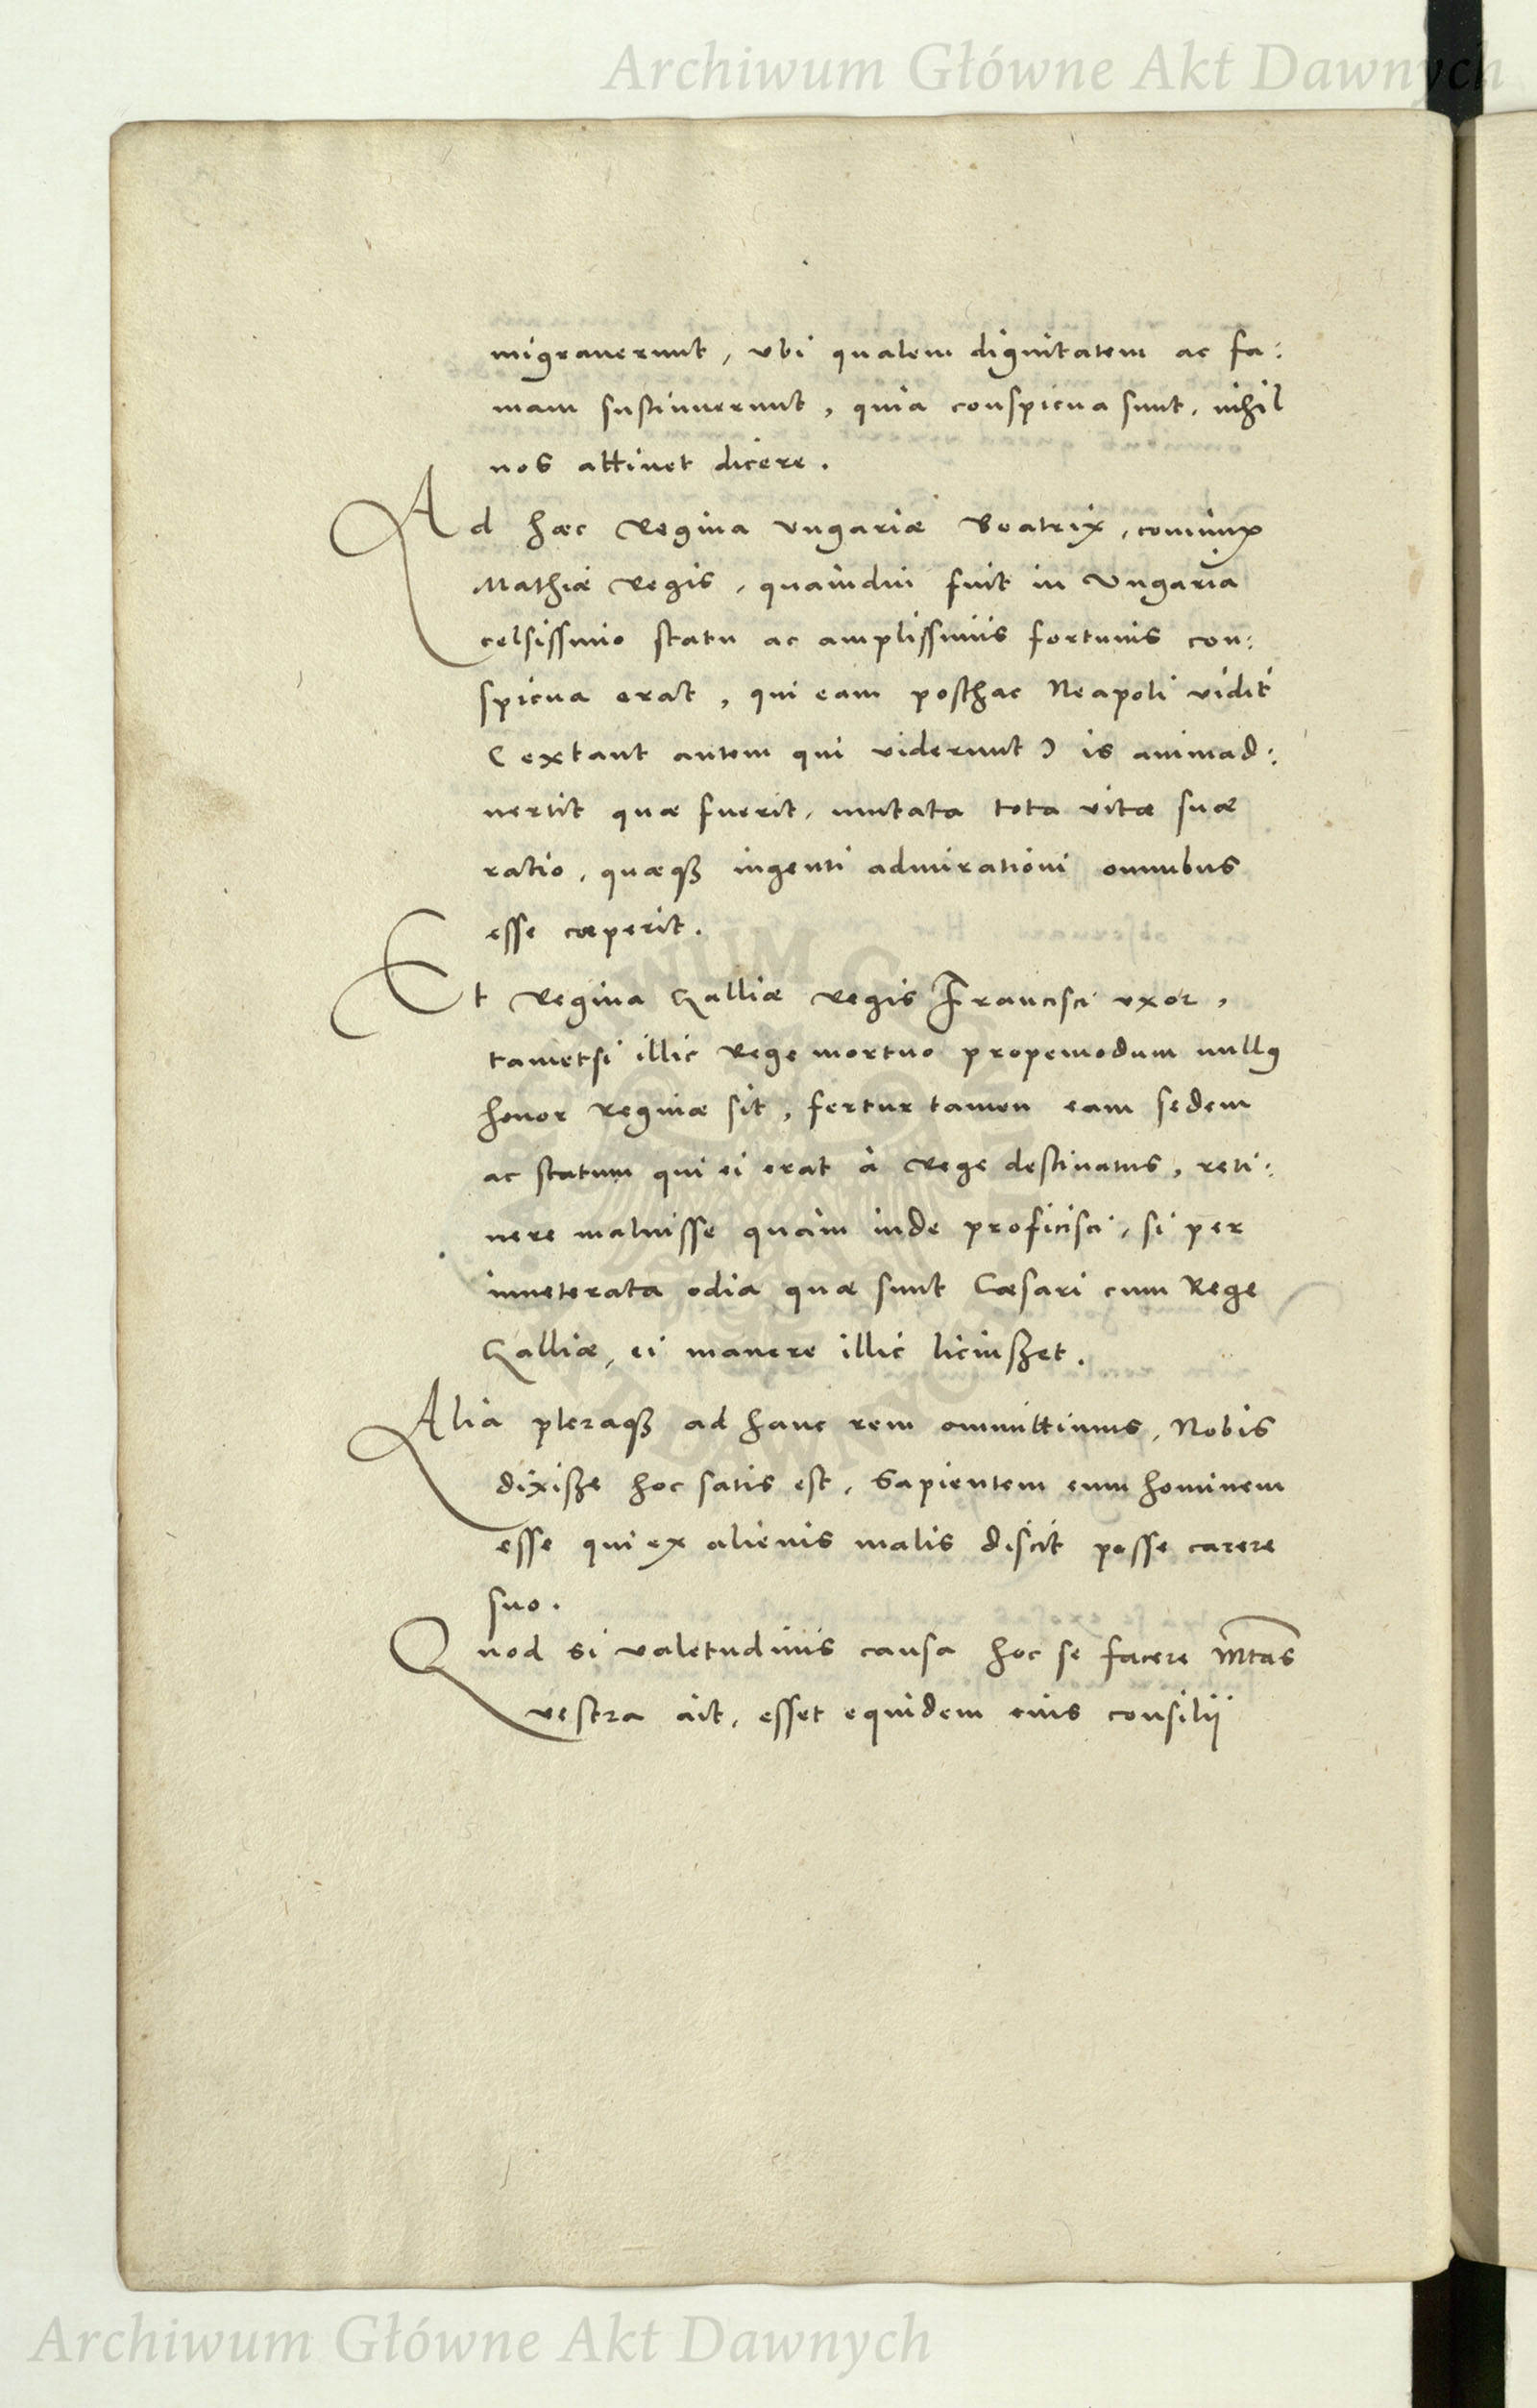 Archiwum Główne Akt Dawnych
migrauerunt, vbi qualem dignitatem ac fa:
mam sustinuerunt, quia conspicua sunt, nihil
nos attinet dicere.
Ad hæc Regina Vngariæ Beatrix, coniunx
Mathiæ Regis, quamdiu fuit in Vngaria
celsissimo statu ac amplissimis fortunis con:
spicua erat, qui eam posthac Neapoli vidit
(extant autem qui viderunt) is animad:
uertit quæ fuerit, mutata tota vitæ suæ
ratio, quæqȝ ingenti admirationi omnibus
esse cœperit.
Et Regina Galliæ Regis Francisci vxor,
tametsi illic Rege mortuo propemodum nullꝰ
honor Reginæ sit, fertur tamen eam sedem
ac statum qui ei erat à Rege destinatus, reti:
nere maluisse quàm inde proficisci, si per
inueterata odia quæ sunt Cæsari cum Rege
Galliæ, ei manere illic licuißet.
Alia pleraqȝ ad hanc rem ommittimus, Nobis
dixiße hoc satis est, Sapientem eum hominem
esse qui ex alienis malis discit posse carere
suo.
Quod si valetudinis causa hoc se facere Mtas
vestra ait, esset equidem eius consilij
Archiwum Główne Akt Dawnych